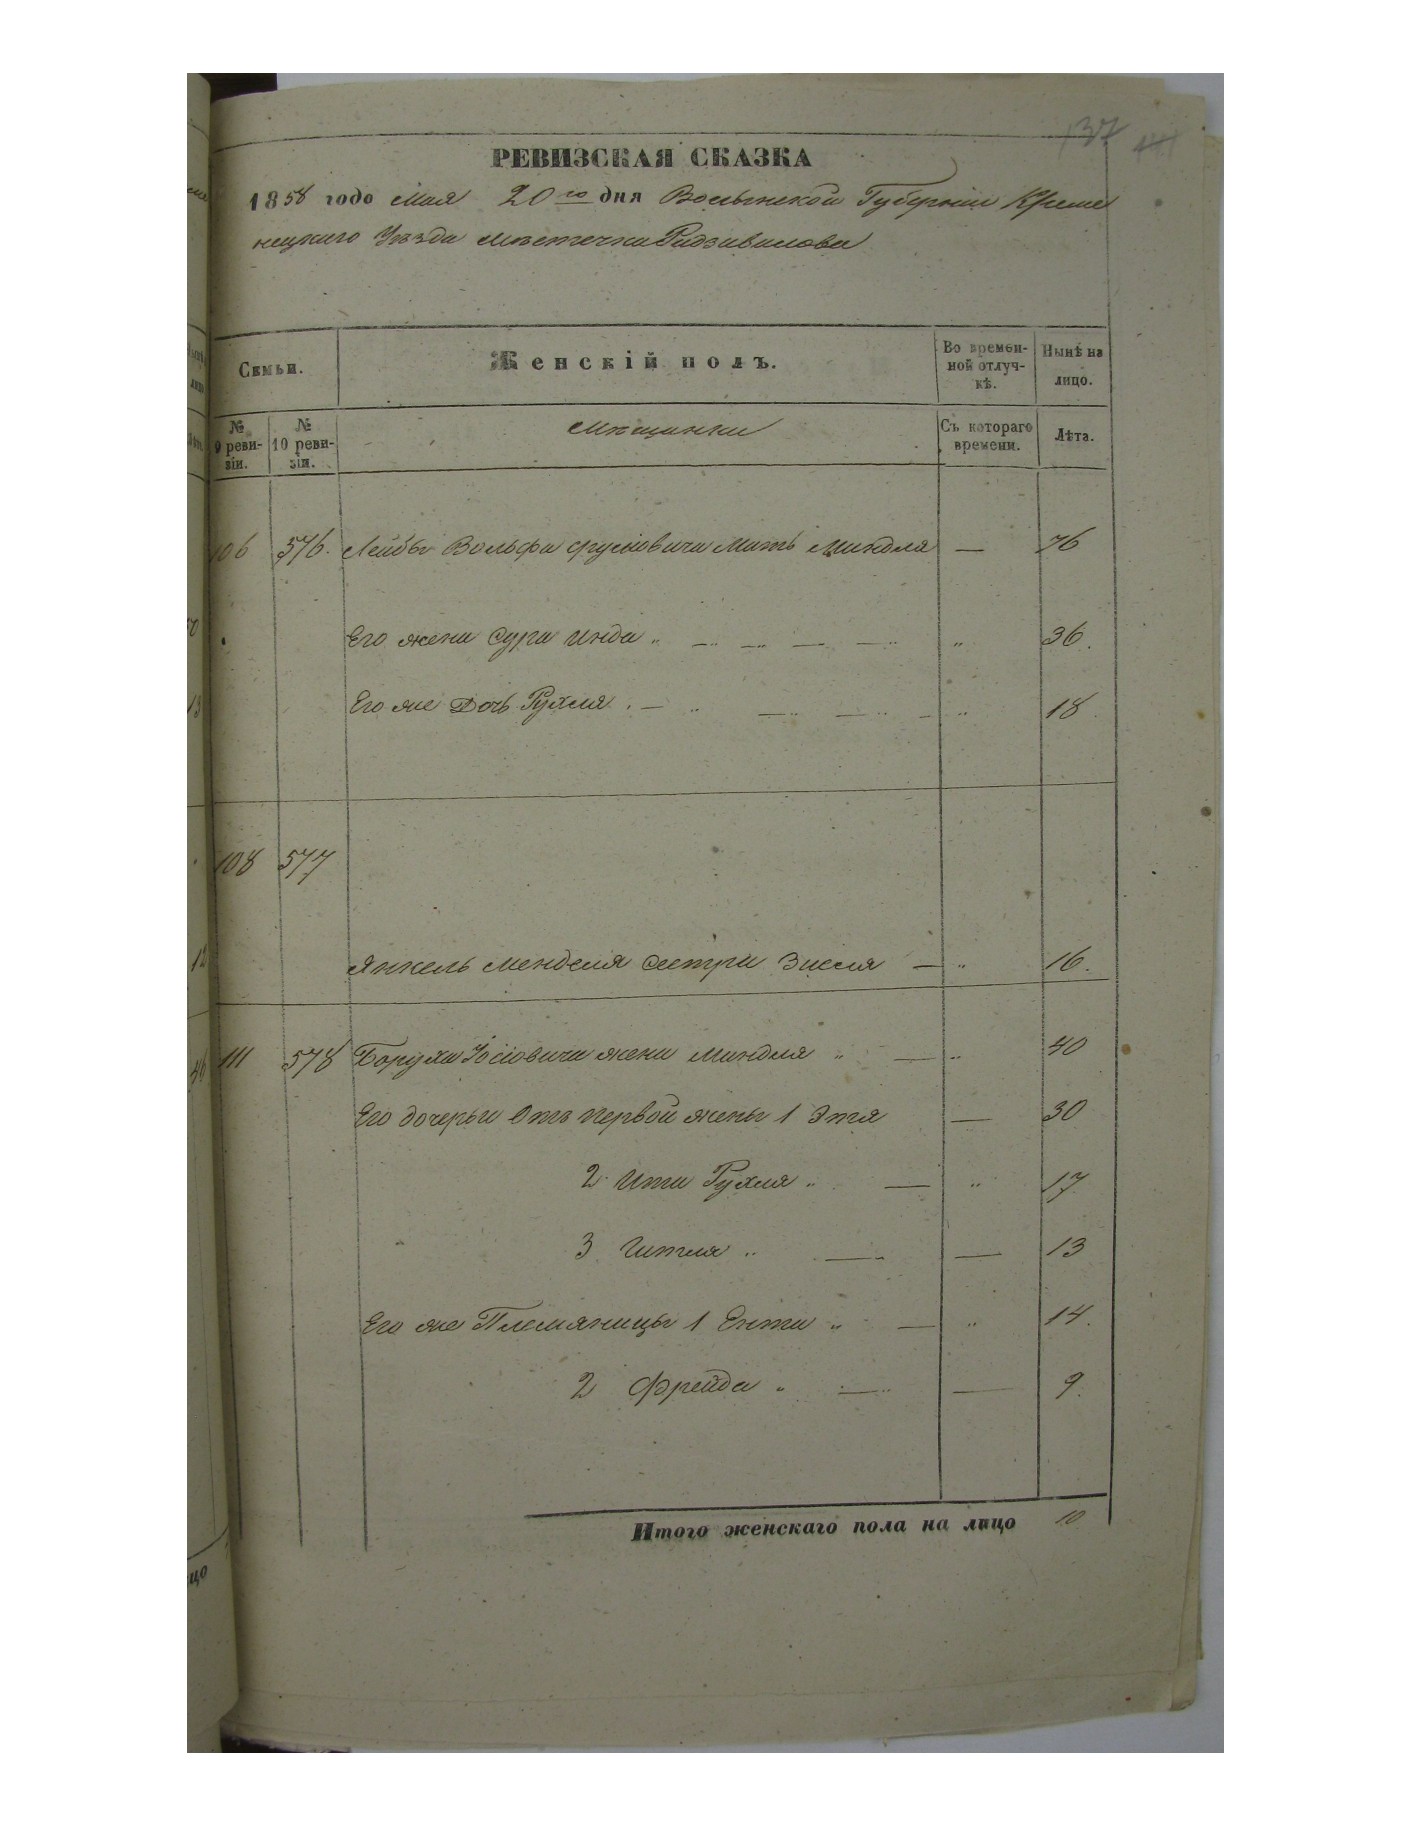 137
РЕВИЗСКАЯ СКАЗКА
1858 года Мая 20го дня Волынской Губернiи Креме
нецкаго Уѣзда мѣстечка Радзивилова
Семьи.
Женскiй полъ.
Во времен-
ной отлуч-
кѣ.
Нынѣ на
лицо.
№
9 реви-
зiи.
№
10 реви-
зiи.
Мѣщанки
Съ котораго
времени.
Лѣта.
106 576. Лейбы Вольфа Сруловича Мать Миндля — 76
Его жена Сура Инда „ „ 36.
Его же Дочь Рухля „ „ 18
108 577
Янкель Менделя сестра Зисля — „ 16.
111 578 Боруха Iосiовича жена Миндля „ — „ 40
Его дочерьи Отъ первой жены 1 Этя — 30
2 Ита Рухля „ — „ 17
3 Гитля „ — — 13
Его же Племяницы 1 Ента „ — „ 14.
2 Фрейда „ — — 9.
Итого женскаго пола на лицо 10